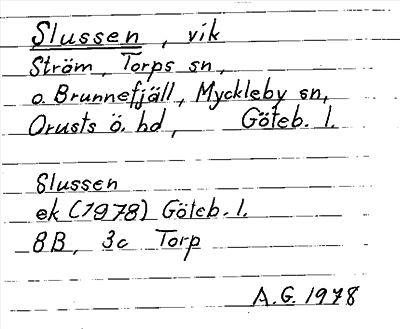 Slussen, vik
Ström, Torps sn,
o. Brunnefjäll, Myckleby sn,
Orusts ö. hd, Göteb. l.
Slussen
ek (1978) Göteb. l.
8B, 3c Torp
A.G. 1978